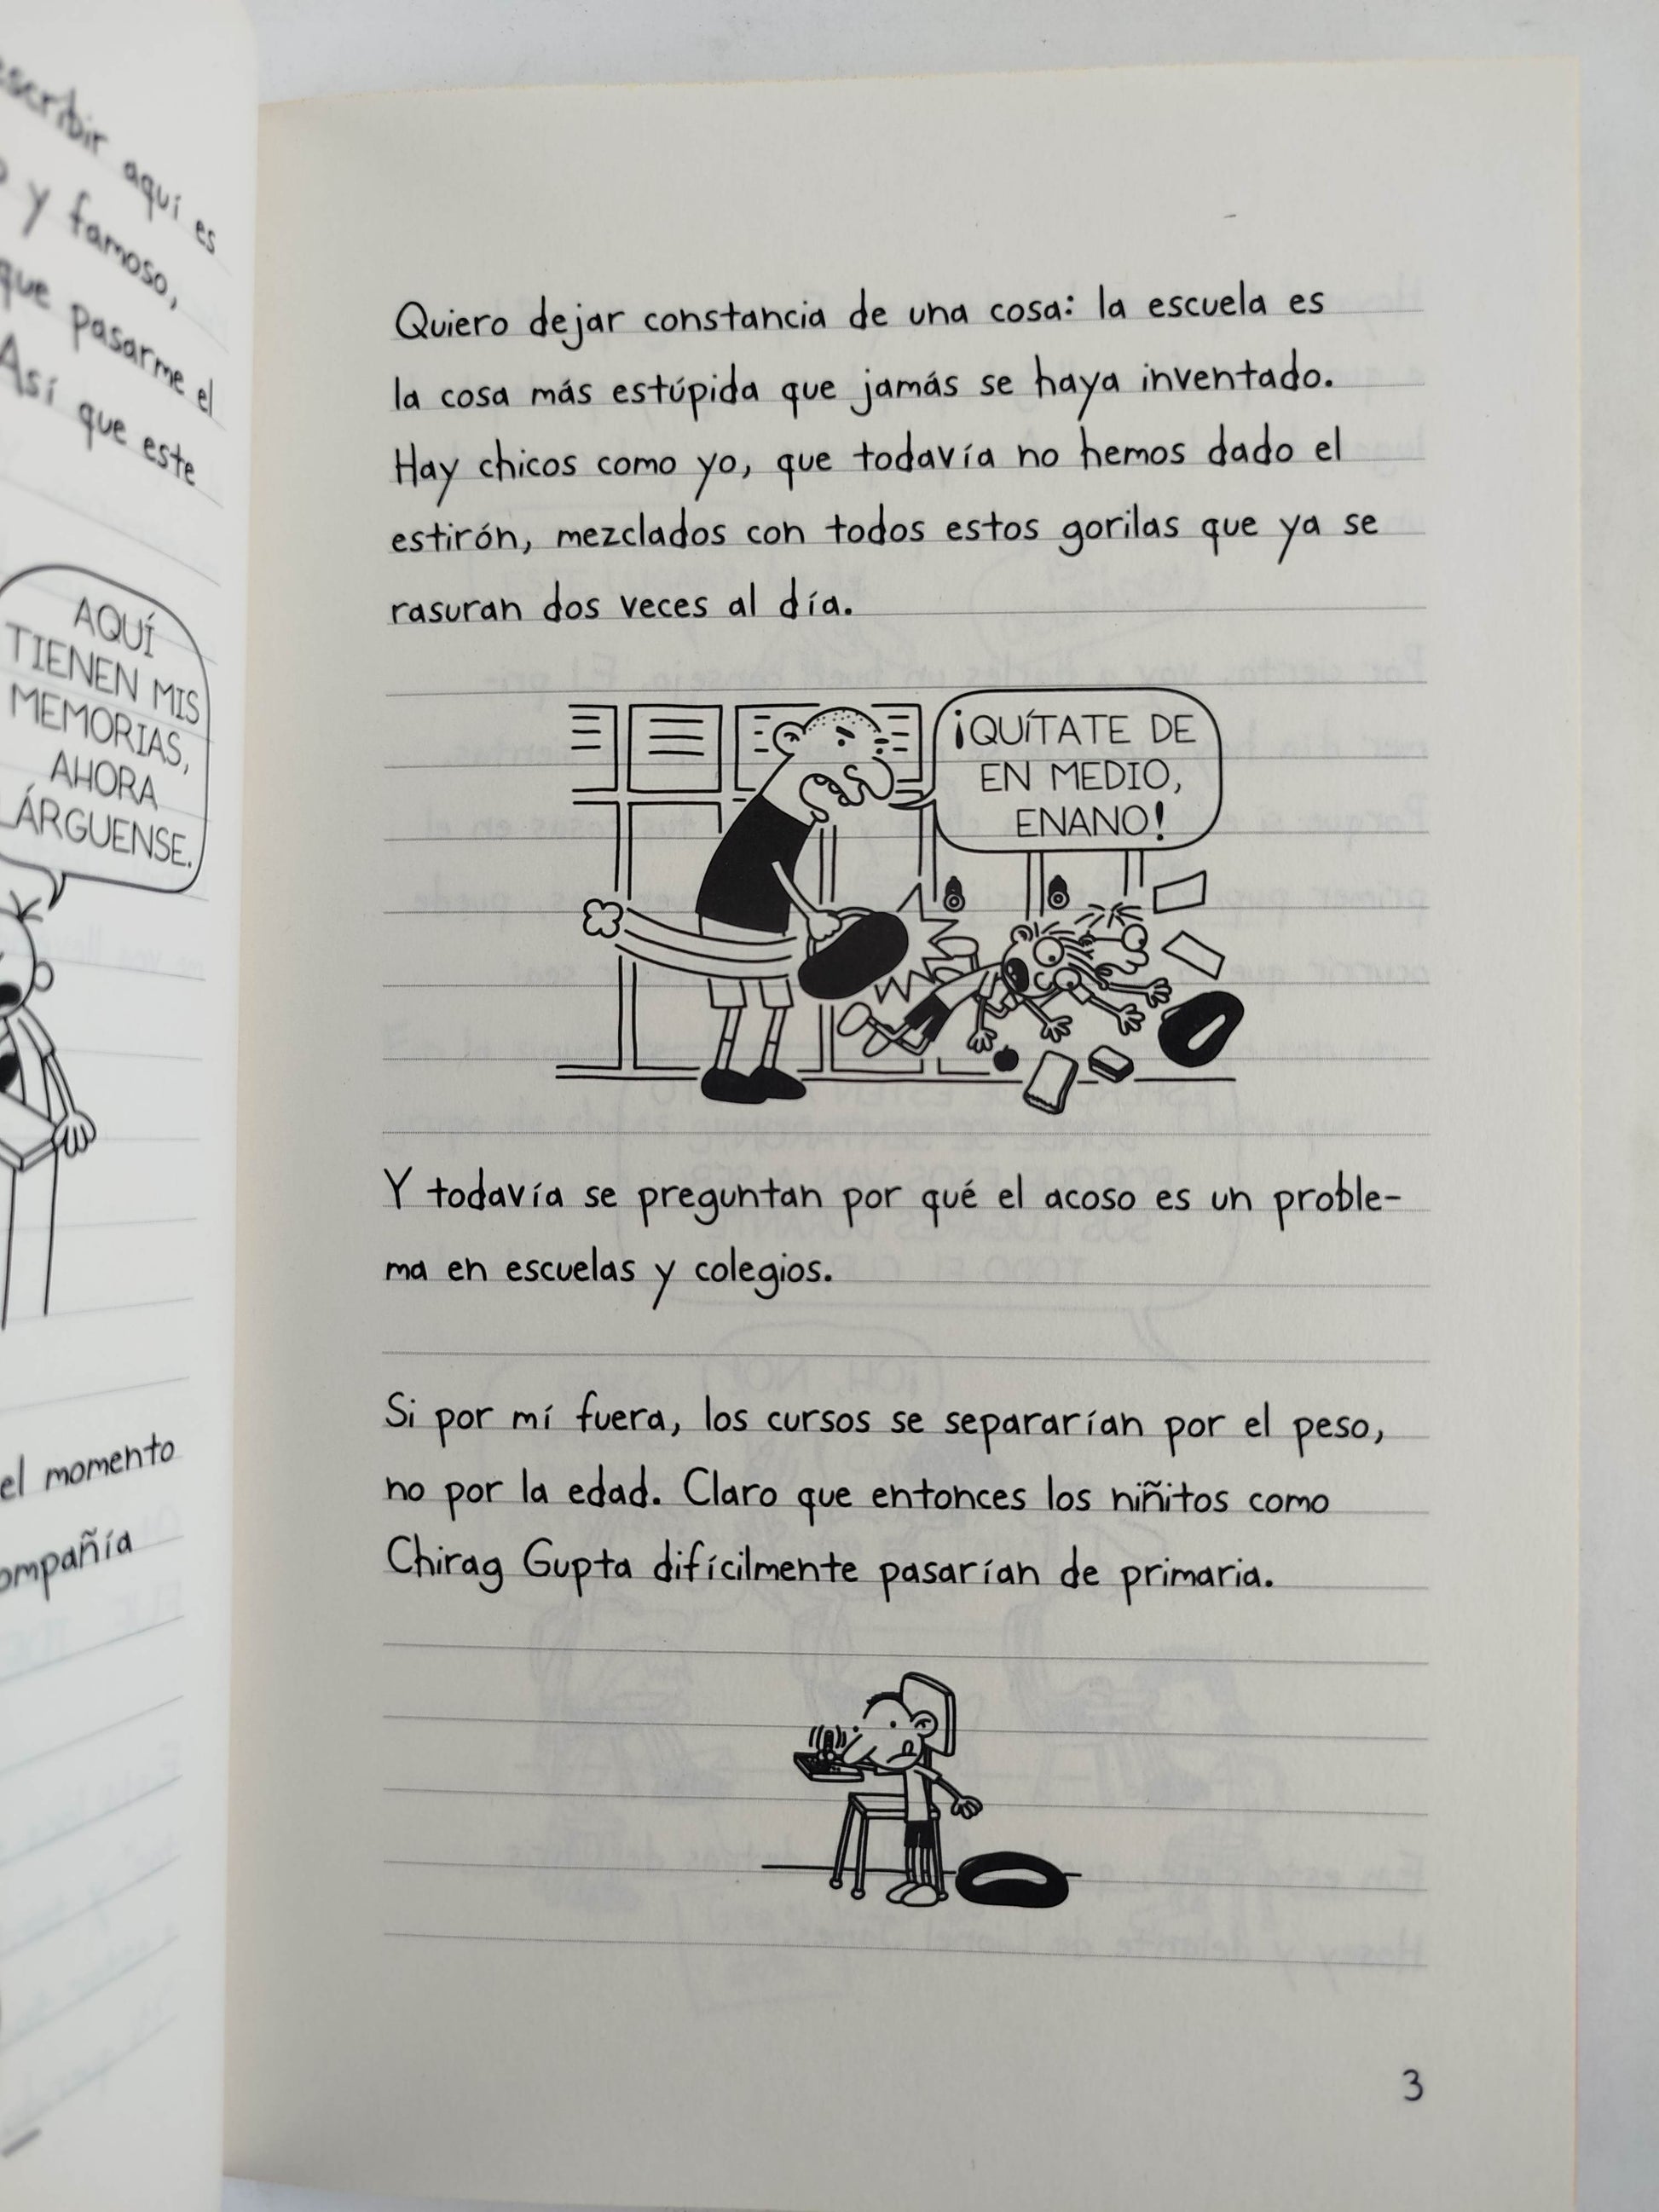 escribir aquí es
y famoso,
que pasarme el
Así que este
AQUÍ
TIENEN MIS
MEMORIAS,
AHORA
LÁRGUENSE.
el momento
Quiero dejar constancia de una cosa: la escuela es
la cosa más estúpida que jamás se haya inventado.
Hay chicos como yo, que todavía no hemos dado el
estirón, mezclados con todos estos gorilas que ya se
rasuran dos veces al día.
¡QUÍTATE DE
EN MEDIO,
ENANO!
Y todavía se preguntan por qué el acoso es un proble-
ma en escuelas y colegios.
Si por mí fuera, los cursos se separarían por el peso,
no por la edad. Claro que entonces los niñitos como
Chirag Gupta difícilmente pasarían de primaria.
3